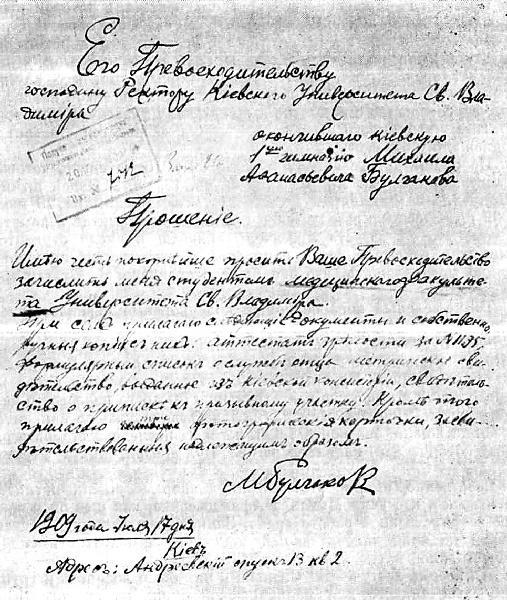 Его Превосходительству
господину Ректору Кіевского Университета Св. Вла-
диміра
окончившаго Кіевскую
1ую гимназію Михаила
Афанасьевича Булгакова
Прошеніе.
Имѣю честь покорнѣйше просить Ваше Превосходительство
зачислить меня студентомъ медицинскаго факульте-
та Университета Св. Владиміра.
При семъ прилагаю слѣдующіе документы и собственно
ручныя копіи съ нихъ: аттестатъ зрѣлости за №
формулярный списокъ о службѣ отца, метрическое сви-
дѣтельство, выданное изъ Кіевской Консисторіи, свидѣтель-
ство о припискѣ къ призывному участку. Кромѣ того
прилагаю три фотографическія карточки, засви-
дѣтельствованныя надлежащимъ образомъ.
МБулгаков
1909 года Іюля 17 дня
Кіевъ
Адресъ: Андреевскій спускъ 13 кв 2.